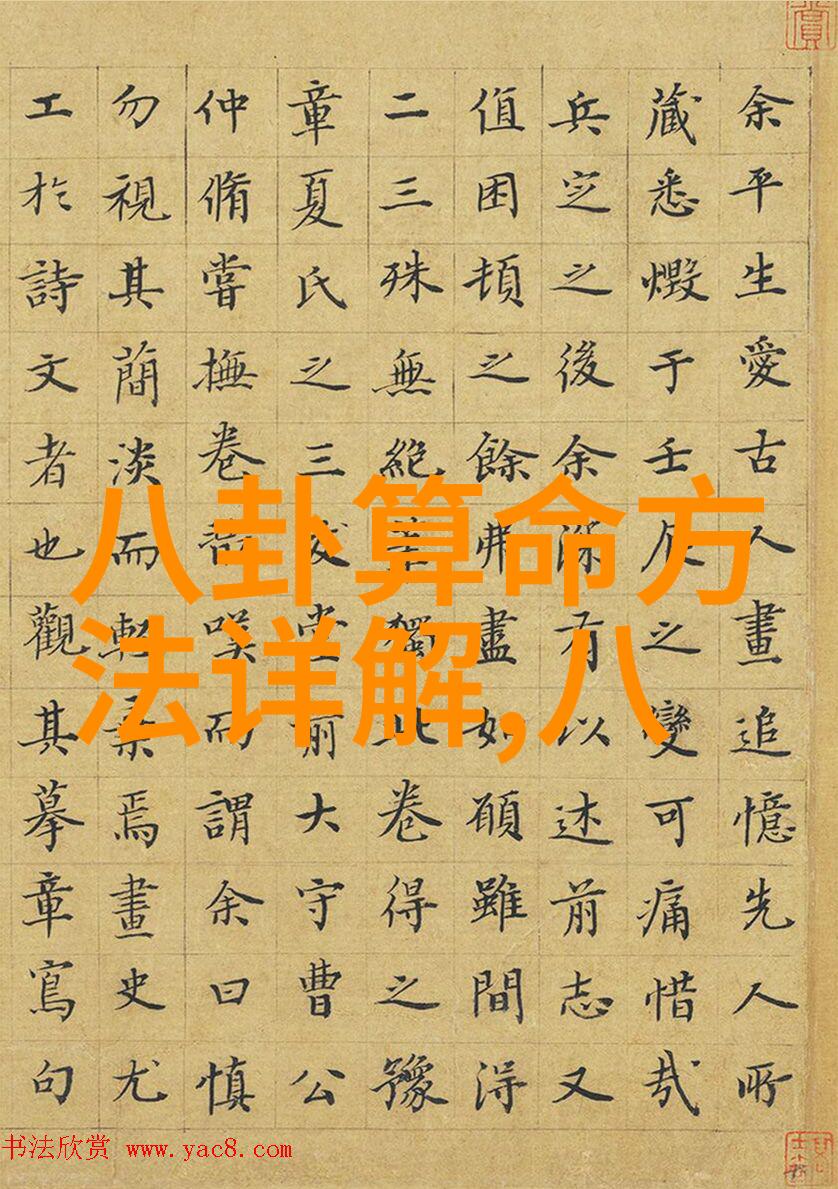 余平生愛古人畫追憶先人所
藏悉燬于壬辰之變可痛惜哉
兵定之後余深有以述前志又
值困頓之餘弗盡如願雖間得
二三殊無絕獨此卷得之豫
章夏氏之三友堂前大守曹公
仲脩嘗撫卷嘆而謂余曰慎
勿視其簡淡而輕棄焉畫史尤
工於詩文者也觀其摹章寫句
八卦算命方
法详解,八
书法欣赏 www.yac8.com